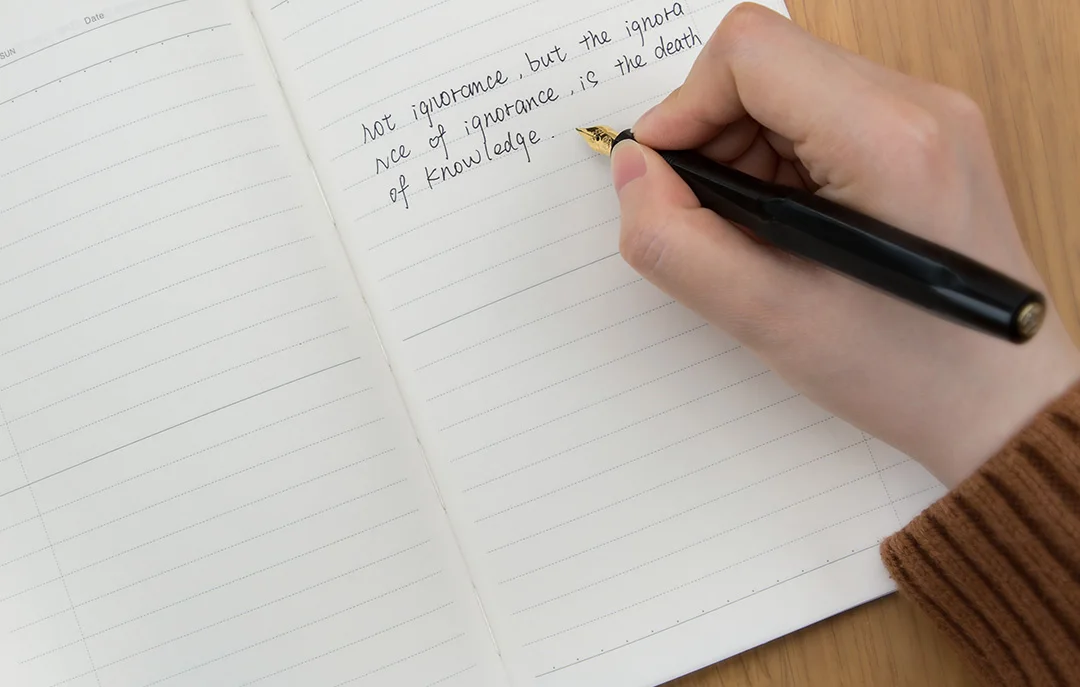 Date
SUN
not ignorance, but the ignora
nce of ignorance, is the death
of knowledge.